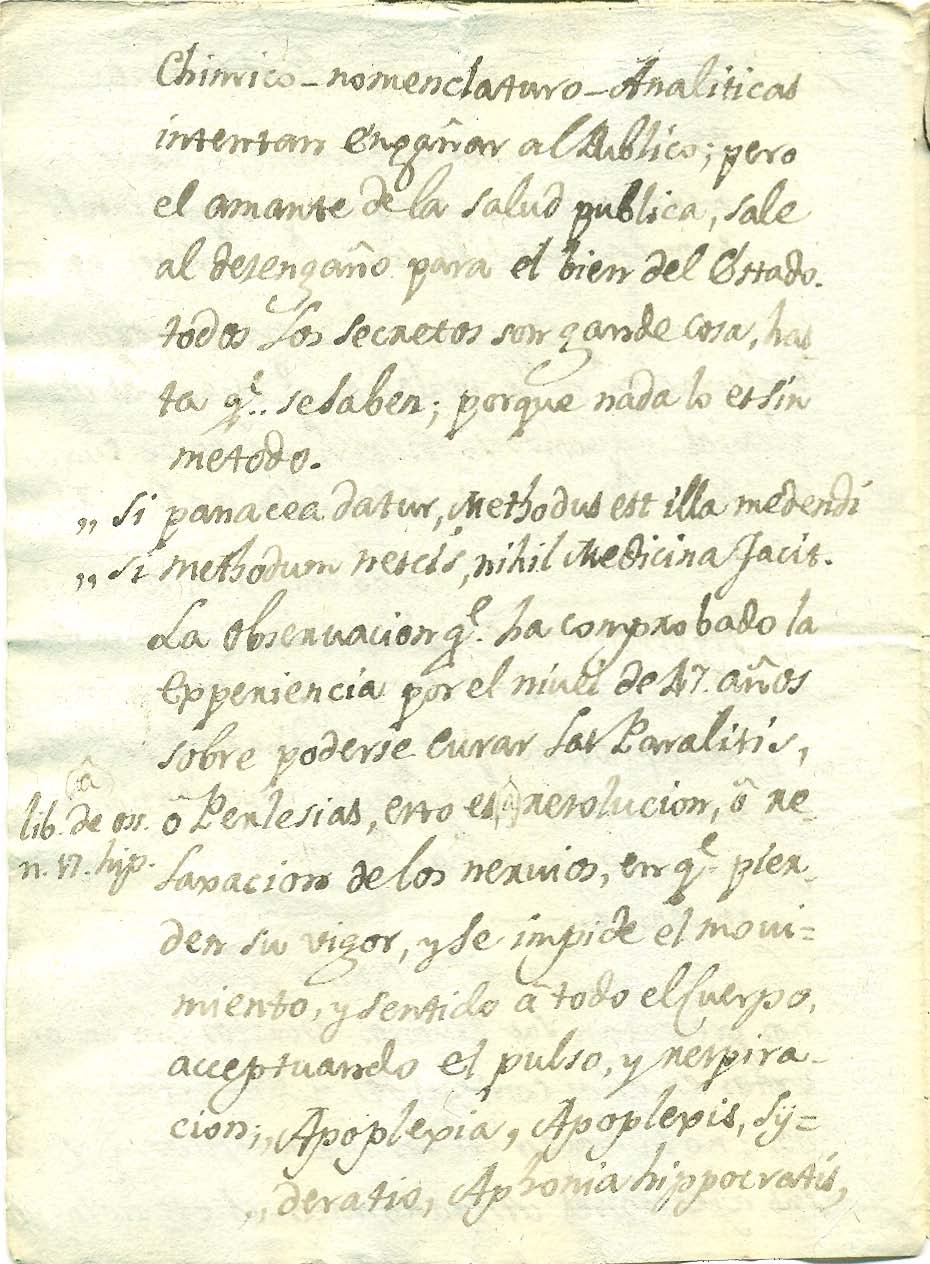 Chimico-nomenclaturo-Analiticas
intentan engañar al Publico; pero
el amante de la salud publica, sale
al desengaño para el bien del Estado.
todos los secretos son grande cosa, has-
ta q.e se saben; porque nada lo es sin
metodo.
„ Si panacea datur, Methodus est illa medendi
„ si methodum nescis, nihil Medicina facit.
La observacion q.e ha comprobado la
Experiencia por el nivel de 47. años
sobre poderse curar las Paralitis,
ô Perlesias, esto es (â) resolucion, ô re-
(â)
lib. de oss.
n. 17. hip.
laxacion de los nervios, en q.e pier-
den su vigor, y se impide el movi=
miento, y sentido â todo el Cuerpo,
acceptuando el pulso, y respira-
cion; „ Apoplexia, Apoplexis, Sy=
„ deratio, Aphonia hippocratis,